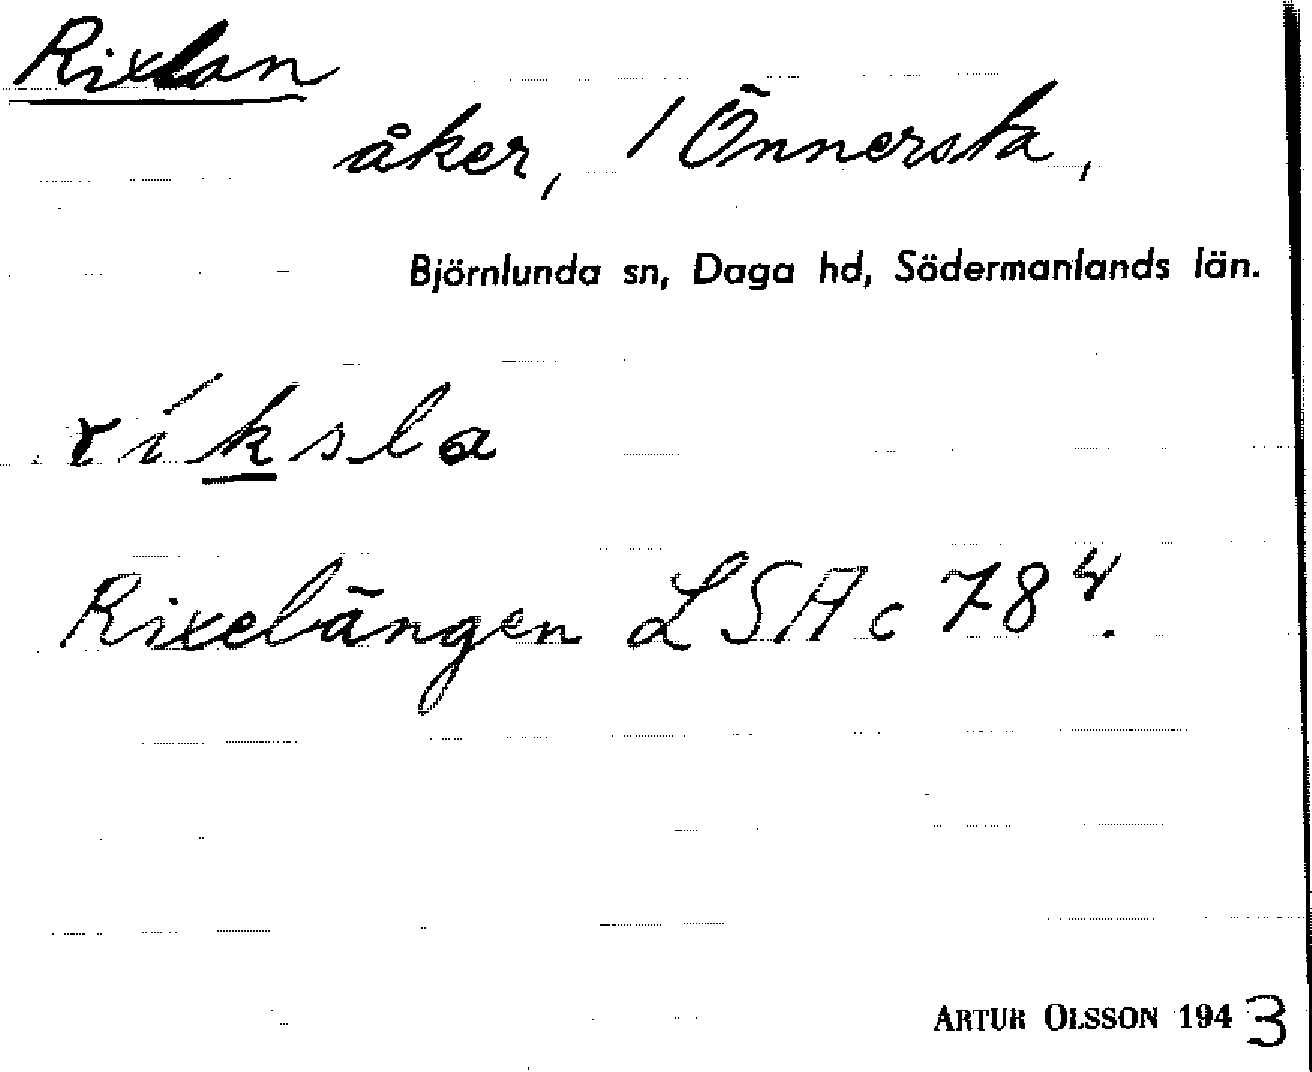 Rixlan
åker, / Önnersta,
Björnlunda sn, Daga hd, Södermanlands län.
ríksla
Rixelängen LSA c 78⁴.
ARTUR OLSSON 1943